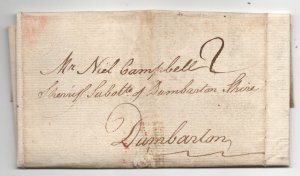 Mr Niel Campbell 2
Sheriff Subolte of Dumbarton Shire
Dumbarton